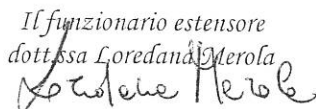 Il funzionario estensore
dott.ssa Loredana Merola
Loredana Merola